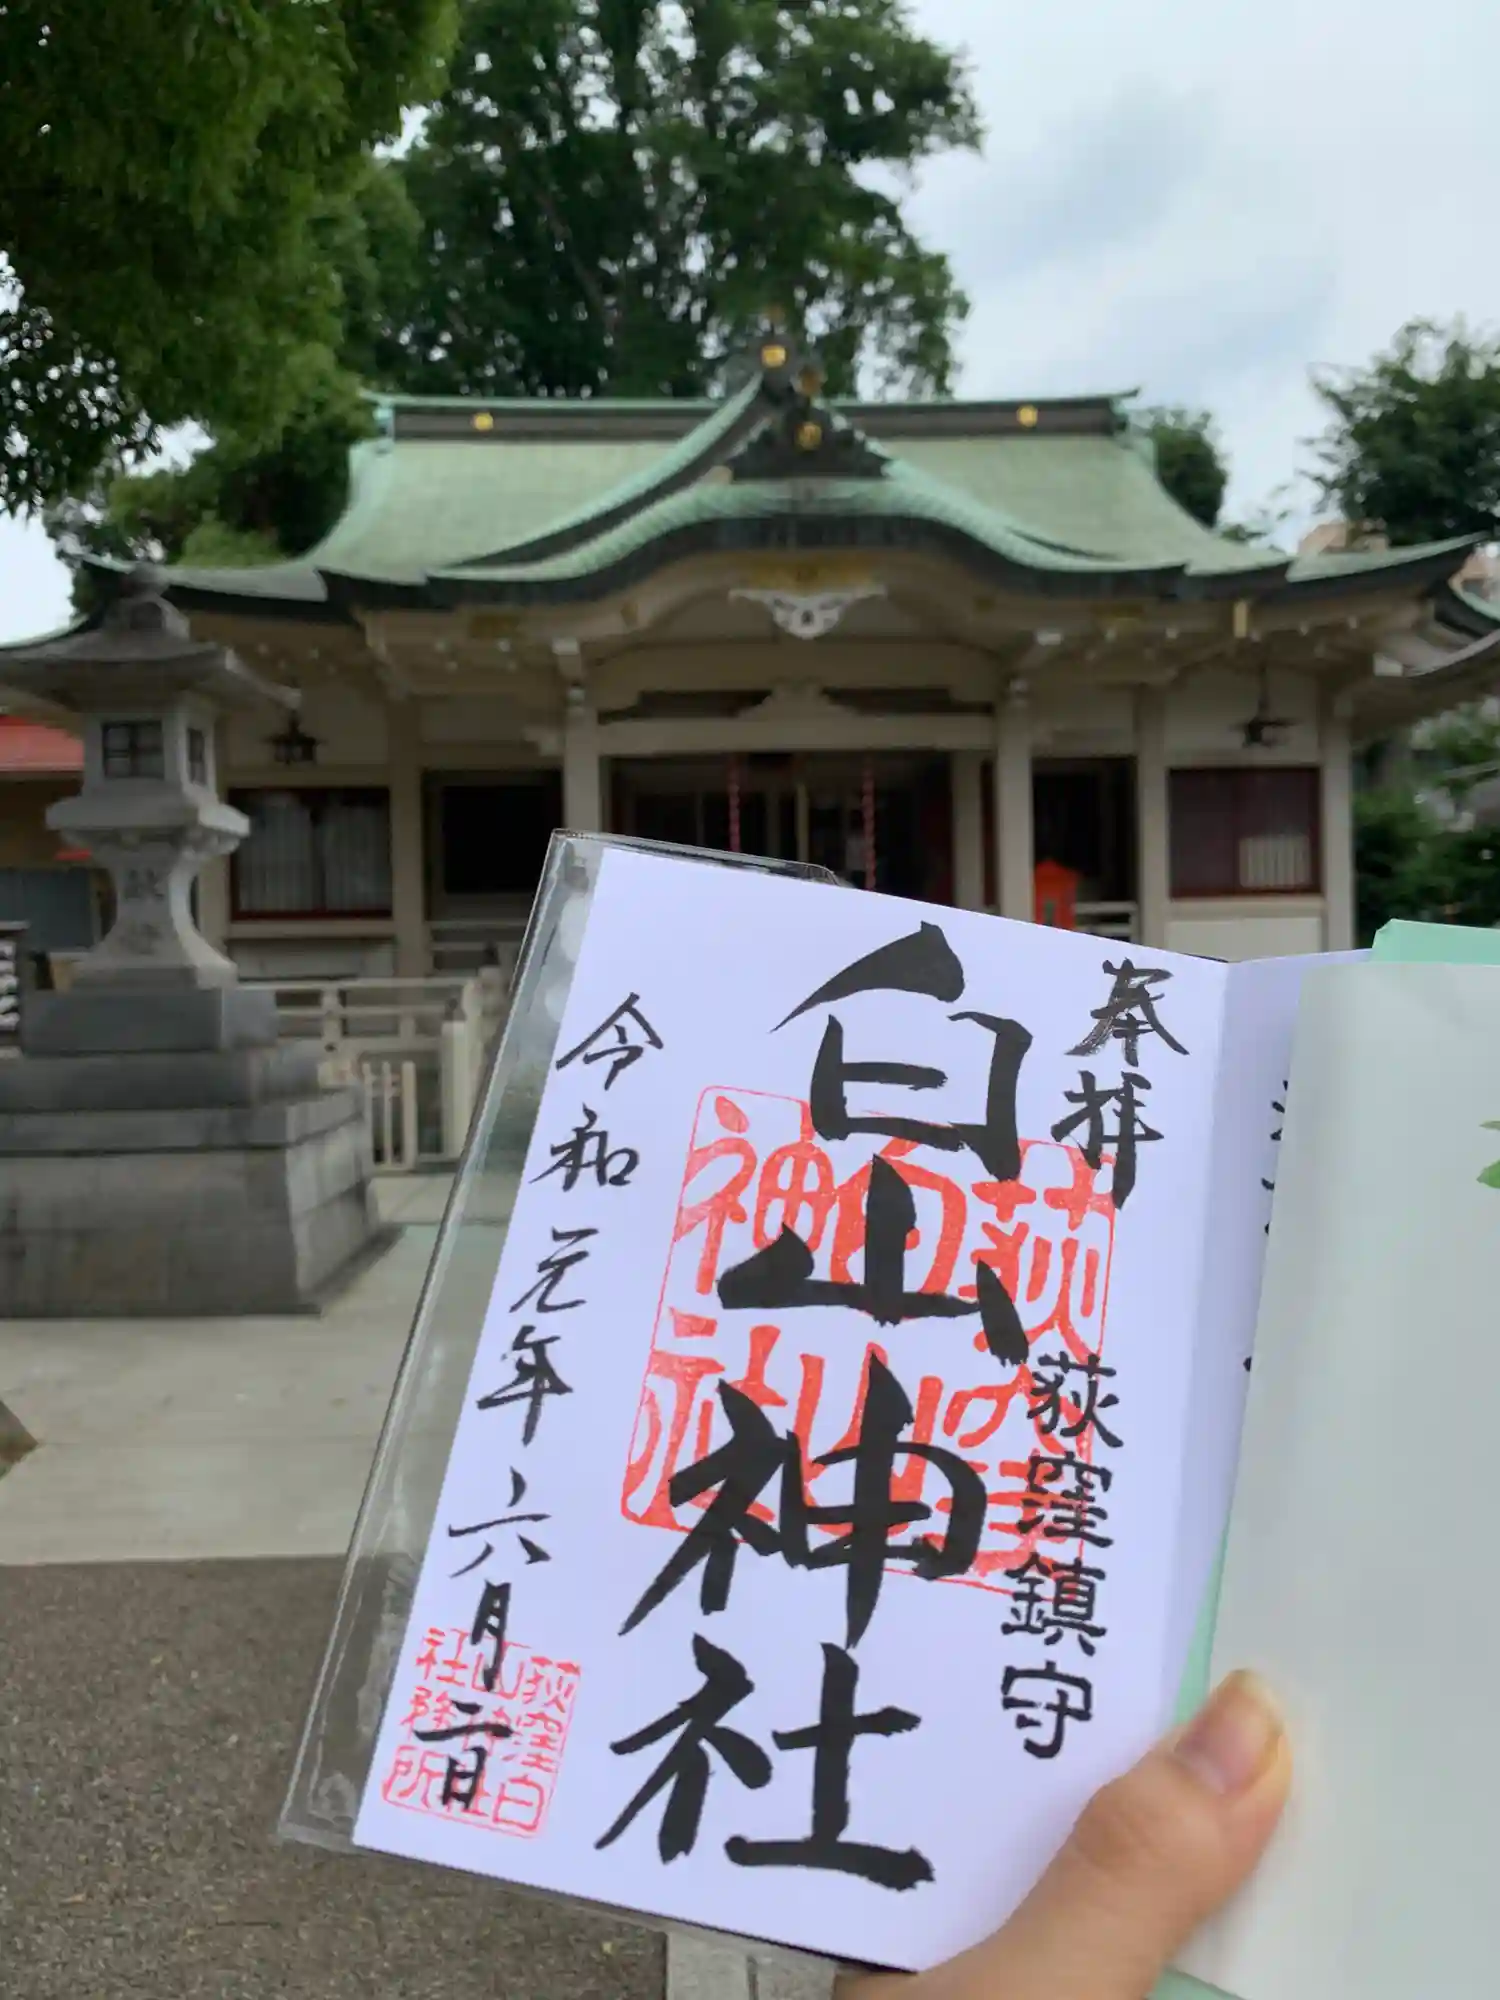 奉拝
荻窪鎮守
白山神社
令和元年六月二日
荻窪
白山
神社
荻窪白
山神社
社務所